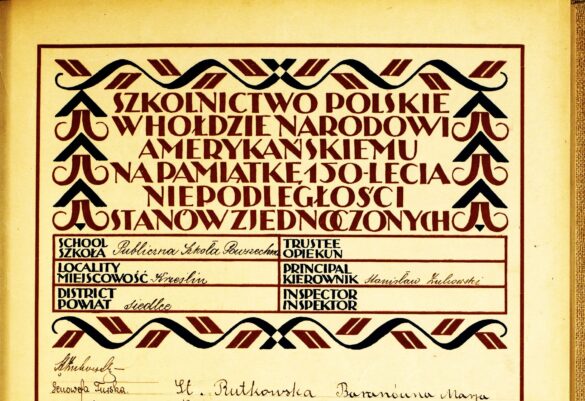 SZKOLNICTWO POLSKIE
W HOŁDZIE NARODOWI
AMERYKAŃSKIEMU
NA PAMIĄTKĘ 150-LECIA
NIEPODLEGŁOŚCI
STANÓW ZJEDNOCZONYCH
SCHOOL
SZKOŁA Publiczna Szkoła Powszechna
TRUSTEE
OPIEKUN
LOCALITY
MIEJSCOWOŚĆ Krześlin
PRINCIPAL
KIEROWNIK Stanisław Żukowski
DISTRICT
POWIAT Siedlce
INSPECTOR
INSPEKTOR
Genowefa Turska St. Rutkowska Baranówna Marja